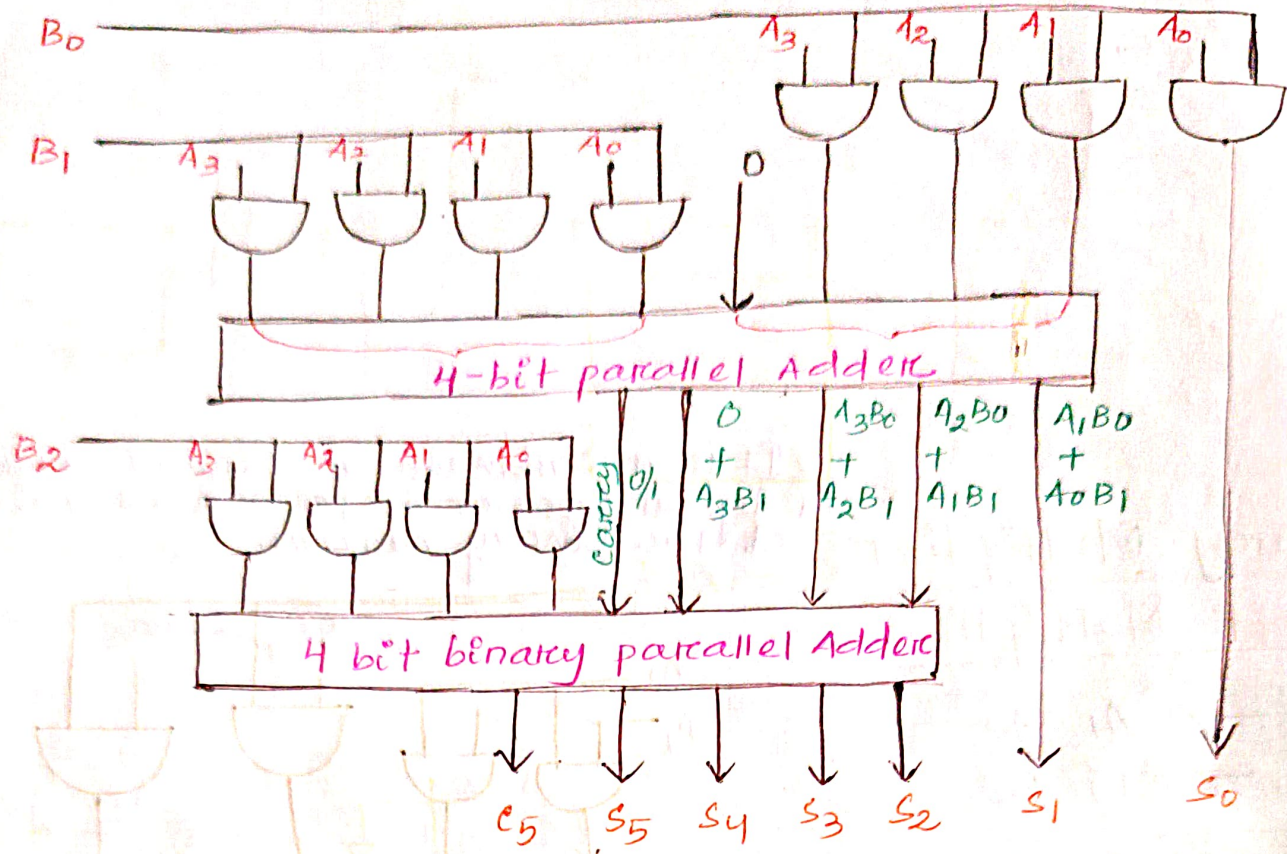 B0 A3 A2 A1 A0
B1 A3 A2 A1 A0 0
4-bit parallel Adder
B2 A3 A2 A1 A0
carry 0/1
0 + A3B1
A3B0 + A2B1
A2B0 + A1B1
A1B0 + A0B1
4 bit binary parallel Adder
C5 S5 S4 S3 S2 S1 S0